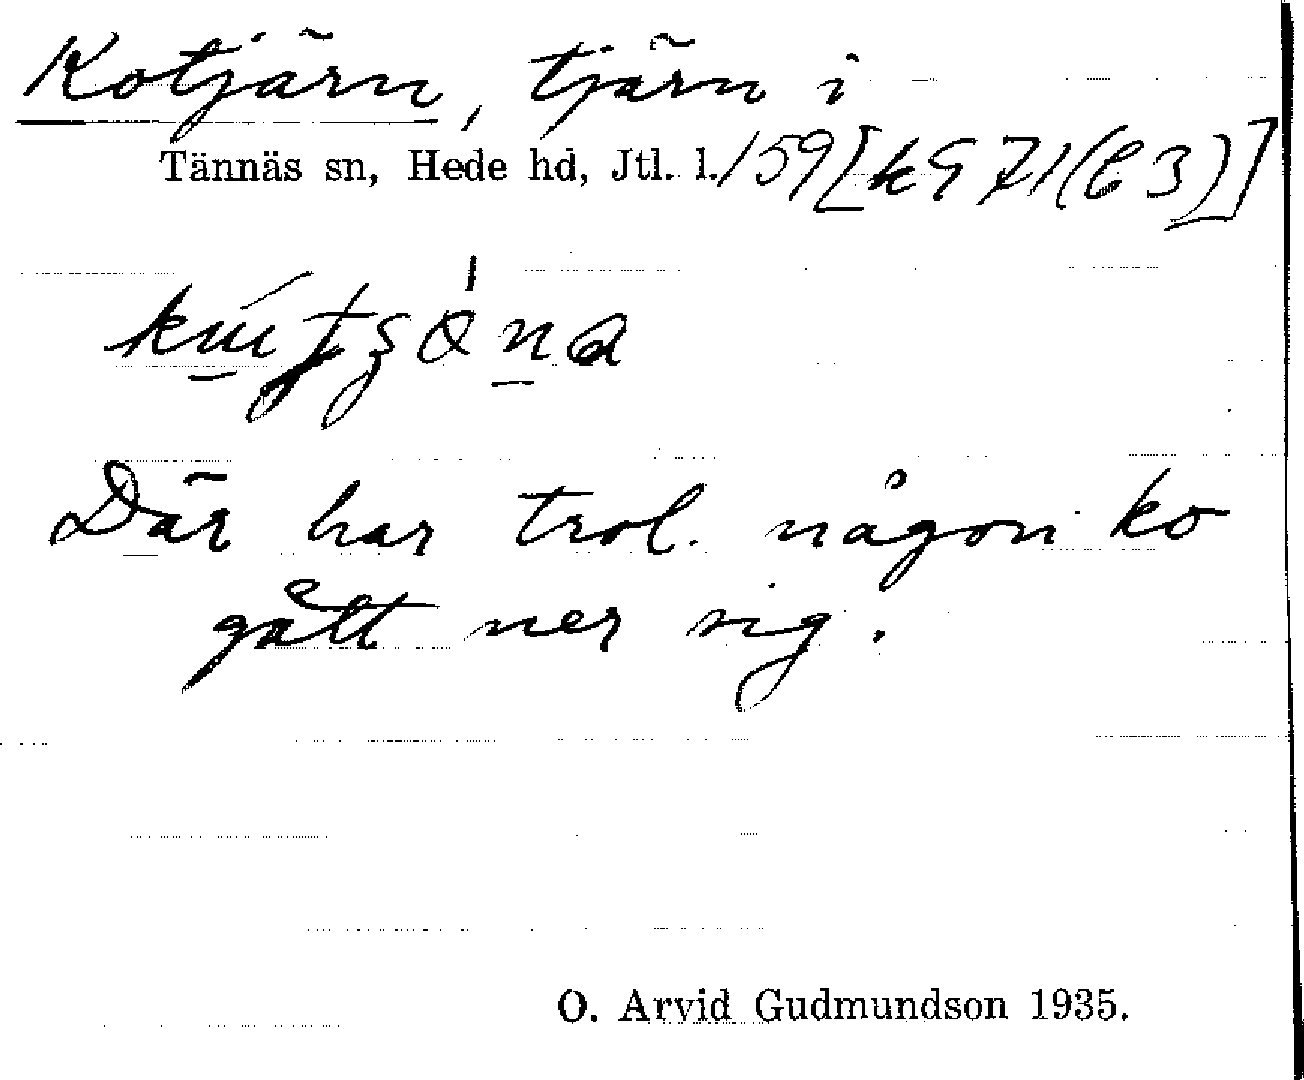 Kotjärn, tjärn i
Tännäs sn, Hede hd, Jtl. l./159[k971(C3)]
Där har trol. någon ko
gått ner sig.
O. Arvid Gudmundson 1935.